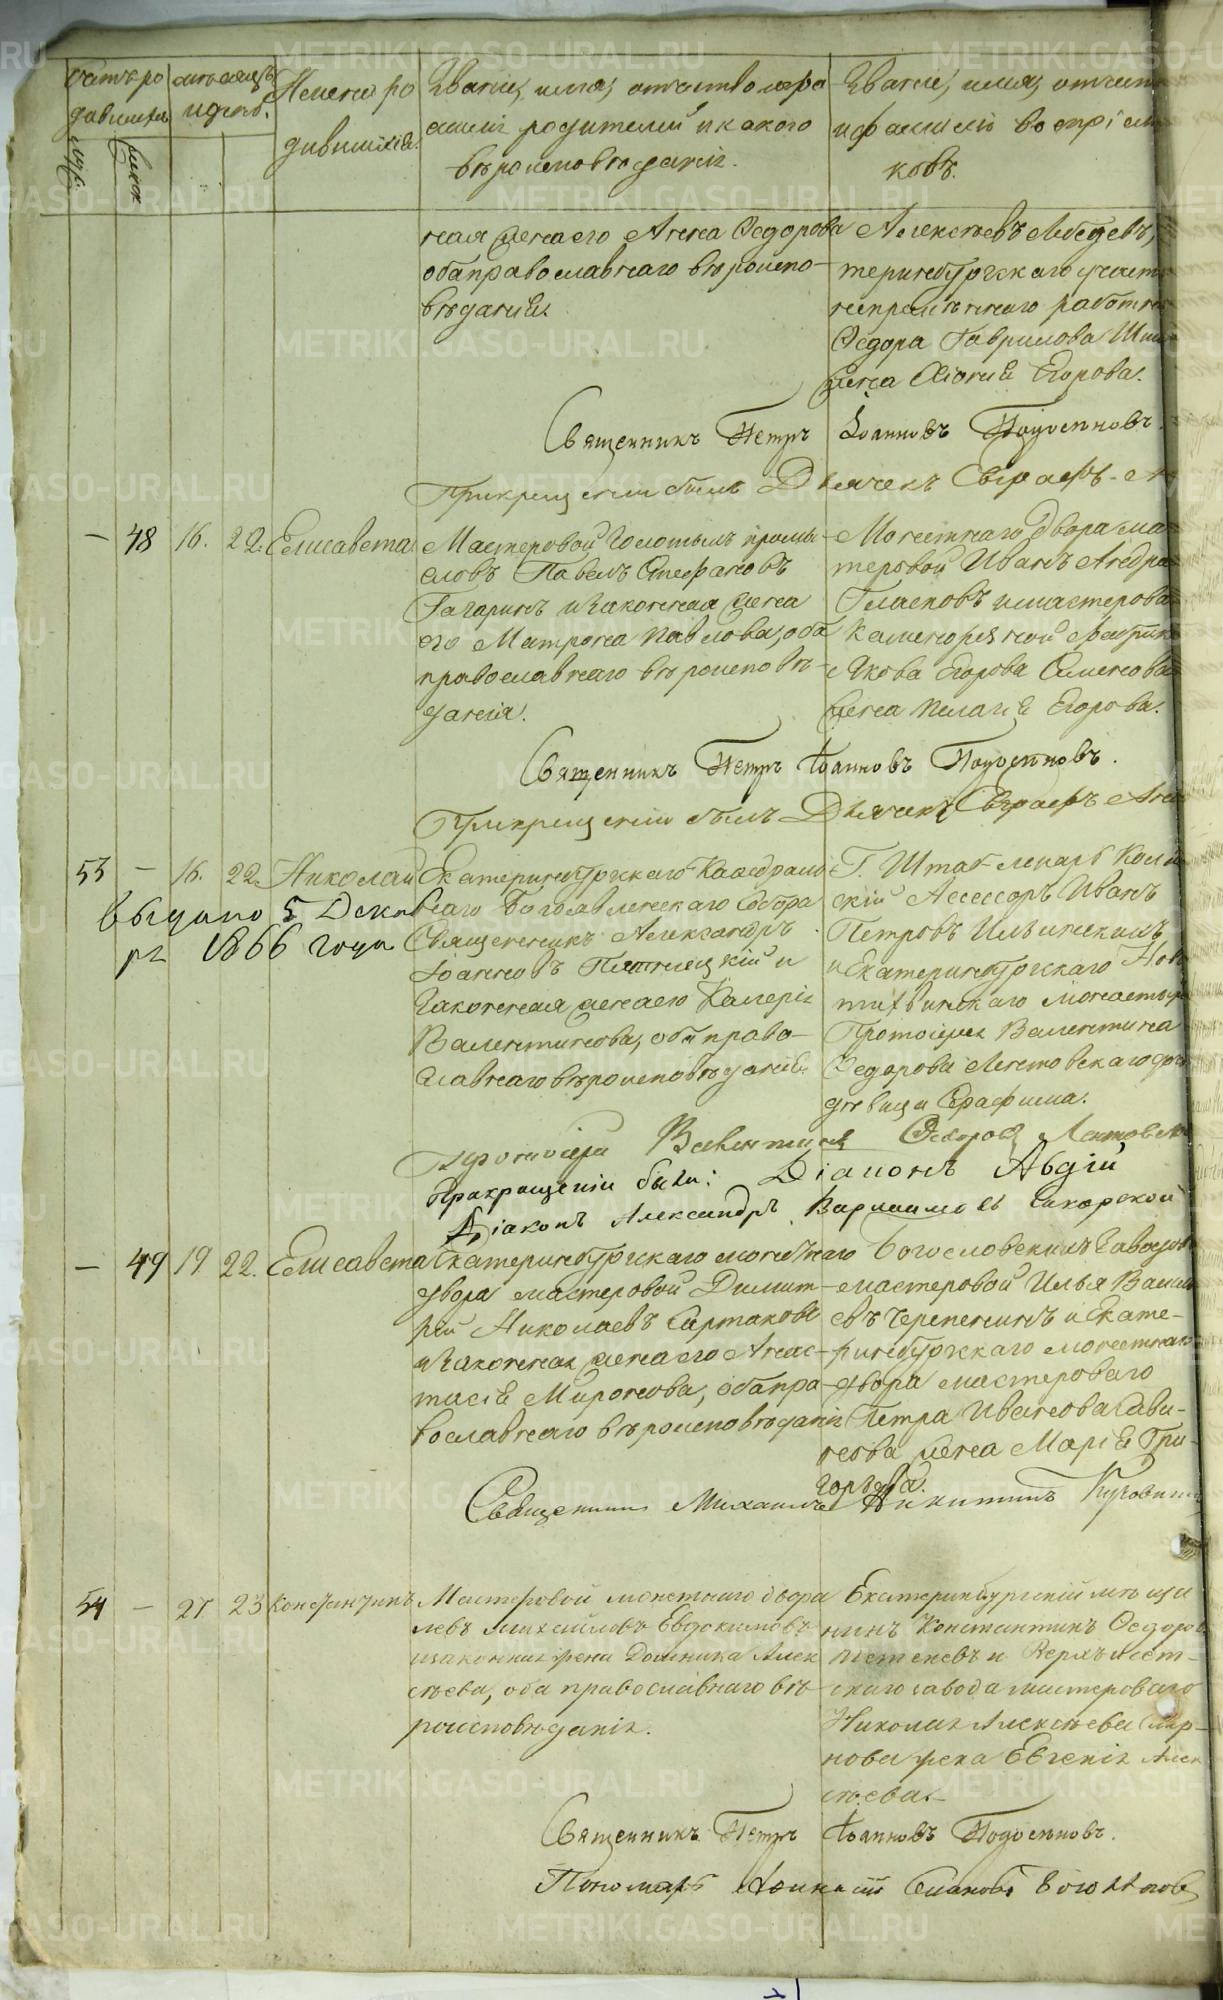 Счетъ ро
дившихся
муж.
женск.
мѣсяцъ
и день.
Имена ро
дившихся.
Званіе, имя, отчество и фа
милія родителей и какого
вѣроисповѣданія.
Званіе, имя, отчест
и фамилія воспріем
ковъ.
ная жена его Анна Ѳедорова
оба православнаго вѣроиспо-
вѣданія.
Алексѣевъ Лебедевъ,
теринбургскаго участ
непремѣннаго работн
Ѳедора Гаврилова
жена Хіонія Егорова.
Священникъ Петръ Іоанновъ Подосеновъ.
При крещеніи былъ Дьячекъ Евграфъ
— 48 16. 22. Елисавета
Мастеровой Золотыхъ промы-
словъ Павелъ Стефановъ
Гагаринъ и законная жена
его Матрона Павлова, оба
православнаго вѣроисповѣ-
данія.
Монетнаго двора ма
теровой Иванъ Андре
и мастерова
Каменорѣзной фабрик
Якова Егорова Семенова
жена Пелагія Егорова.
Священникъ Петръ Іоанновъ Подосеновъ.
При крещеніи былъ Дьячекъ Евграфъ
53 — 16. 22. Николай
выдано 5 Декаб
ря 1866 года
Екатеринбургскаго Каѳедраль
наго Богоявленскаго Собора
Священникъ Александръ
Іоанновъ Пятницкій и
законная жена его Валерія
Валентинова, оба право-
славнаго вѣроисповѣданія.
Г. Штабъ лекарь Колле
скій Ассесоръ Иванъ
Петровъ Ильинскихъ
и Екатеринбургскаго Ново
тихвинскаго монастыря
Протоіерея Валентина
Ѳедорова Лентовскаго доч
дѣвица Серафима.
Протоіерей Валентинъ Ѳедоровъ Лентовскі
При крещеніи были: Діаконъ Авдій
Діаконъ Александръ Варлаамовъ Сикорской
— 49 19 22. Елисавета
Екатеринбургскаго монетнаго
двора мастеровой Димит-
рій Николаевъ Сартаковъ
и законная жена его Анас-
тасія Миронова, оба пра-
вославнаго вѣроисповѣданія
Богословскихъ заводов
мастеровой Илья Васил
евъ Черепенинъ и Екате-
ринбургскаго монетнаго
двора мастероваго
Петра Иванова Сави-
нова жена Марія Гри-
горьева.
Священникъ Михаилъ Никитинъ
54 — 21 23 Константинъ
Мастеровой монетнаго двора
Левъ Михайловъ Евдокимовъ
и законная жена Домника Алек
сѣева, оба православнаго вѣ-
роисповѣданія.
Екатеринбургскій мѣща
нинъ Константинъ Ѳедоров
и Верхъ Исет-
скаго завода мастероваго
Николая Алексѣева Смир-
нова жена Евгенія Алек
сѣева.
Священникъ Петръ Іоанновъ Подосеновъ.
Пономарь